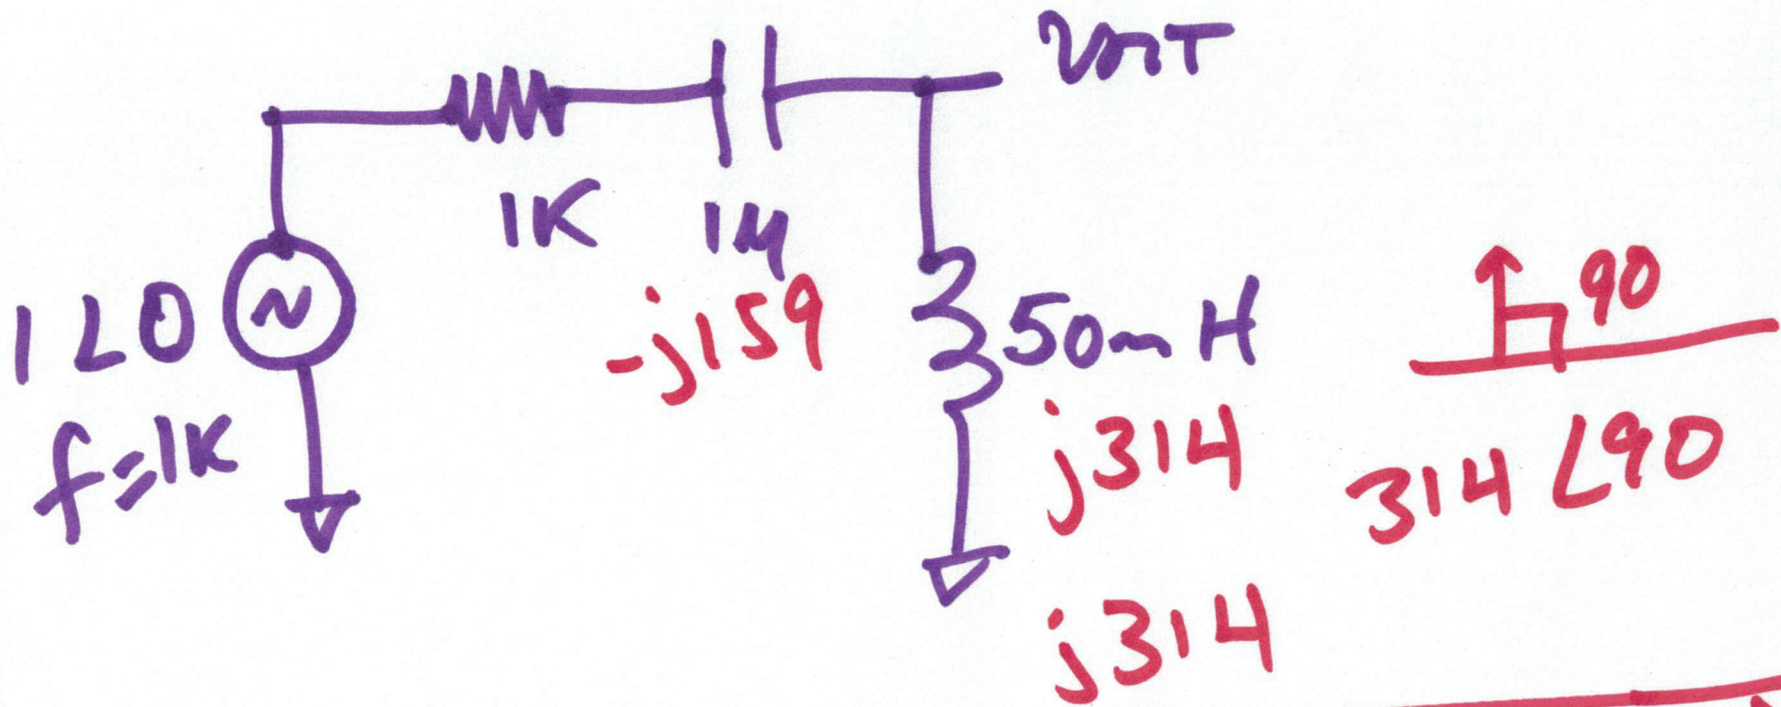 VOUT
1K
1µ
-j159
1∠0
f=1K
50mH
j314
90
314 ∠90
j314